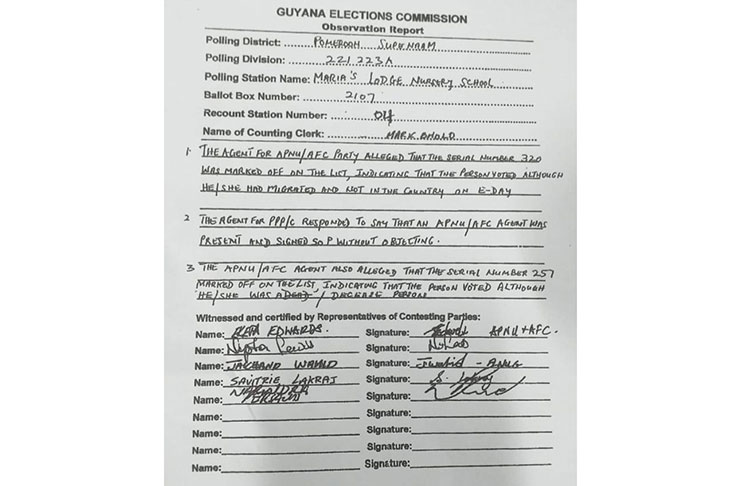 GUYANA ELECTIONS COMMISSION
Observation Report
Polling District: POMEROON SUPENAAM
Polling Division: 221223A
Polling Station Name: MARIA'S LODGE NURSERY SCHOOL
Ballot Box Number: 2107
Recount Station Number: 04
Name of Counting Clerk: MARK
1. THE AGENT FOR APNU/AFC PARTY ALLEGED THAT THE SERIAL NUMBER 320
WAS MARKED OFF ON THE LIST, INDICATING THAT THE PERSON VOTED ALTHOUGH
HE/SHE HAD MIGRATED AND NOT IN THE COUNTRY ON E-DAY
2 THE AGENT FOR PPP/C RESPONDED TO SAY THAT AN APNU/AFC AGENT WAS
PRESENT AND SIGNED SOP WITHOUT OBJECTING.
3. THE APNU/AFC AGENT ALSO ALLEGED THAT THE SERIAL NUMBER 257
MARKED OFF ON THE LIST, INDICATING THAT THE PERSON VOTED ALTHOUGH
HE/SHE WAS A DEAD / DECEASE PERSON
Witnessed and certified by Representatives of Contesting Parties:
Name: EDWARDS. Signature: APNU+AFC.
Name: Signature:
Name: JAICHAND Signature:
Name: SAVITRIE LAKRAJ Signature:
Name: Signature:
Name: Signature:
Name: Signature:
Name: Signature:
Name: Signature: